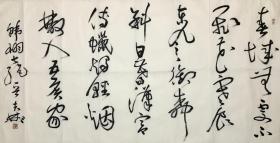 春城無處不
飛花寒食
東風御柳
斜日暮漢宮
傳蠟燭輕烟
散入五侯家
韓翃